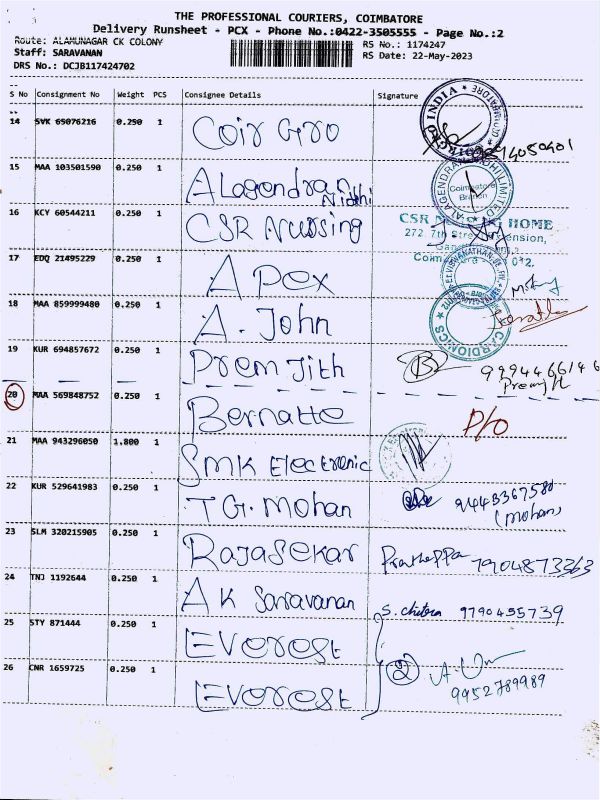 THE PROFESSIONAL COURIERS, COIMBATORE
Delivery Runsheet - PCX - Phone No.:0422-3505555 - Page No.:2
Route: ALAMUNAGAR CK COLONY RS No.: 1174247
Staff: SARAVANAN RS Date: 22-May-2023
DRS No.: DCJB117424702
S No Consignment No Weight PCS Consignee Details Signature
14 SVK 65076216 0.250 1 Coir Gro
15 MAA 103501590 0.250 1 Alagendran Nidhi
16 KCY 60544211 0.250 1 CSR Nursing
17 EDQ 21495229 0.250 1 Apex
18 MAA 859999480 0.250 1 A. John
19 KUR 694857672 0.250 1 Prem Jith
20 MAA 569848752 0.250 1 Bernatte P/O
21 MAA 943296050 1.800 1 SMK Electronic
22 KUR 529641983 0.250 1 T G. Mohan 9443367580
(mohan)
23 SLM 320215905 0.250 1 Rajasekar 7904873363
24 TNJ 1192644 0.250 1 A K Saravanan S. chitra 9790455739
25 STY 871444 0.250 1 Everest
26 CNR 1659725 0.250 1 Everest 2 9952789989
COIR GRO INDIA
Coimbatore
Branch
HOME
272 7th
CARDIONICS